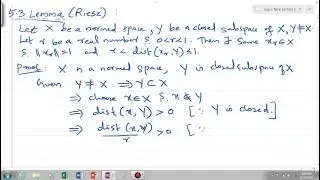 5.3 Lemma (Riesz) :
Let X be a normed space, Y be a closed subspace of X, Y≠X
Let r be a real number ∋ 0<r<1. Then ∃ some xr∈X
∋ ‖xr‖=1 and r < dist(xr, Y) ≤ 1.
Proof: X is a normed space, Y is closed subspace of X
Given Y≠X ⇒ Y⊂X
⇒ choose x∈X ∋ x∉Y
⇒ dist(x, Y) > 0 [∵ Y is closed.]
⇒ dist(x,Y)/r > 0 [∵